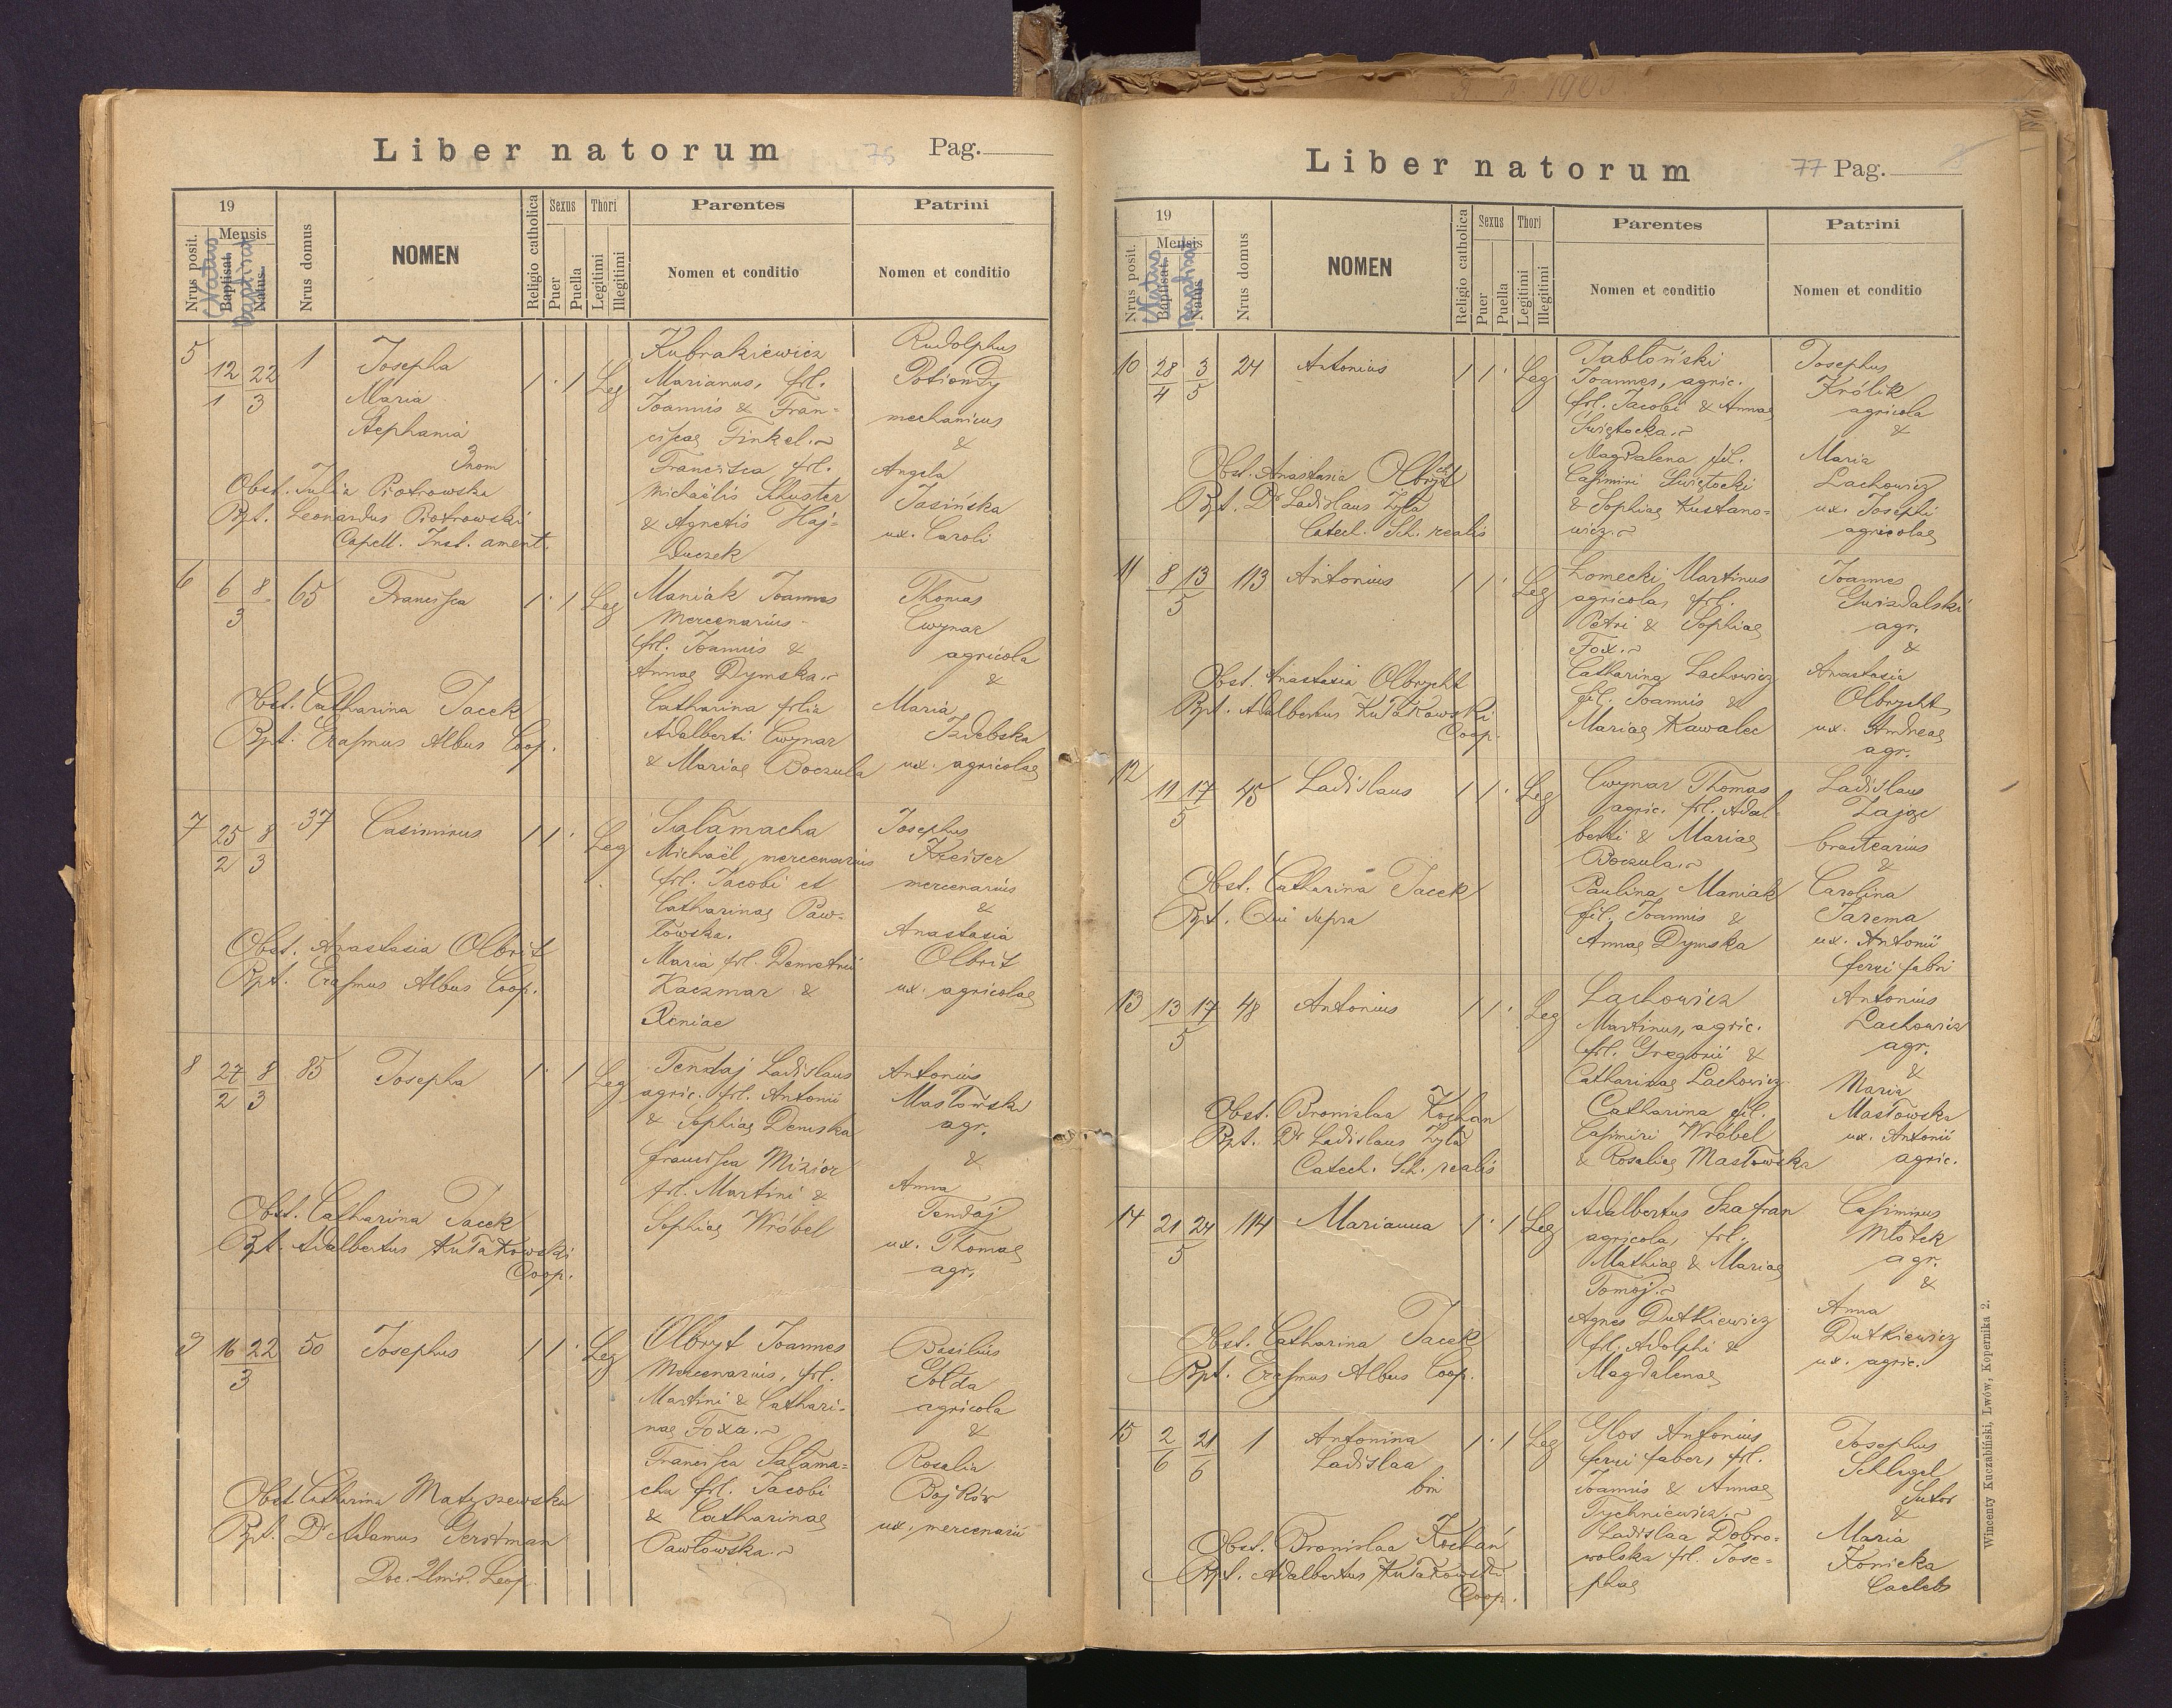 Liber natorum 75 Pag.
19
Mensis
Nrus posit.
Natus
Baptisat.
Baptisat
Natus
Nrus domus
NOMEN
Religio catholica
Sexus
Puer
Puella
Thori
Legitimi
Illegitimi
Parentes
Nomen et conditio
Patrini
Nomen et conditio
5
12 22
1 3
1
Josepha
Maria
Stephania
3nom
Obst. Julia Piotrowska
Bpt. Leonardus Piotrowski
Capell. Inst. ament.
1 · 1 Leg
Kubrakiewicz
Marianus, fil.
Joannis & Fran=
ciscae Finkel.
Francisca fil.
Michaëlis Schuster
& Agnetis Haj=
duczek
Rudolphus
Potiondy
mechanicus
&
Angela
Jasińska
ux. Caroli
6
6 8
3
65
Francisca
Obst. Catharina Jacek
Bpt. Erasmus Albus Coop.
1 · 1 Leg
Maniak Joannes
mercenarius
fil. Joannis &
Annae Dymska.
Catharina filia
Adalberti Cwynar
& Mariae Boczula
Thomas
Cwynar
agricola
&
Maria
Izdebska
ux. agricolae
7
25 8
2 3
37
Casimirus
Obst. Anastasia Olbrit
Bpt. Erasmus Albus Coop.
1 1 · Leg
Sałamacha
Michaël, mercenarius
fil. Jacobi et
Catharinae Paw=
łowska.
Maria fil. Demetrii
Kaczmar &
Xeniae
Josephus
Kreiser
mercenarius
&
Anastasia
Olbrit
ux. agricolae
8
27 8
2 3
85
Josepha
Obst. Catharina Jacek
Bpt. Adalbertus Kułakowski
Coop.
1 · 1 Leg
Tendaj Ladislaus
agric. fil. Antonii
& Sophiae Demska
Francisca Mizior
fil. Martini &
Sophiae Wróbel
Antonius
Masłowski
agr.
&
Anna
Tendaj
ux. Thomae
agr.
9
16 22
3
50
Josephus
Obst. Catharina Matyszewska
Bpt. Dr Adamus Gerstman
Doc. Univ. Leop.
1 1 · Leg
Olbryt Joannes
Mercenarius, fil.
Martini & Cathari=
nae Foxa.
Francisca Sałama=
cha fil. Jacobi
& Catharinae
Pawłowska.
Basilius
Gołda
agricola
&
Rosalia
Bojków
ux. mercenarii
Liber natorum 77 Pag.
19
Mensis
Nrus posit.
Natus
Baptisat.
Baptisat
Natus
Nrus domus
NOMEN
Religio catholica
Sexus
Puer
Puella
Thori
Legitimi
Illegitimi
Parentes
Nomen et conditio
Patrini
Nomen et conditio
10
28 3
4 5
24
Antonius
Obst. Anastasia Olbrycht
Bpt. Dr Ladislaus Żyła
Catech. Sch. realis
1 1 · Leg
Jabłoński
Joannes, agric.
fil. Jacobi & Annae
Świętocka.
Magdalena fil.
Casimiri Świętocki
& Sophiae Kustano=
wicz.
Josephus
Królik
agricola
&
Maria
Lachowicz
ux. Josephi
agricolae
11
8 13
5
113
Antonius
Obst. Anastasia Olbrycht
Bpt. Adalbertus Kułakowski
Coop.
1 1 · Leg
Łomecki Martinus
agricola, fil.
Petri & Sophiae
Fox.
Catharina Lachowicz
fil. Joannis &
Mariae Kawalec
Joannes
Gwizdalski
agr.
&
Anastasia
Olbrycht
ux. Andreae
agr.
12
11 17
5
45
Ladislaus
Obst. Catharina Jacek
Bpt. Qui supra
1 1 · Leg
Cwynar Thomas
agric. fil. Adal=
berti & Mariae
Boczula.
Paulina Maniak
fil. Joannis &
Annae Dymska
Ladislaus
Zając
bractearius
&
Carolina
Jarema
ux. Antonii
ferri fabri
13
13 17
5
48
Antonius
Obst. Bronislaa Kochan
Bpt. Dr Ladislaus Żyła
Catech. Sch. realis
1 1 · Leg
Lachowicz
Martinus, agric.
fil. Gregorii &
Catharinae Lachowicz
Catharina fil.
Casimiri Wróbel
& Rosaliae Masłowska
Antonius
Lachowicz
agr.
&
Maria
Masłowska
ux. Antonii
agric.
14
21 24
5
114
Marianna
Obst. Catharina Jacek
Bpt. Erasmus Albus Coop.
1 · 1 Leg
Adalbertus Szafran
agricola, fil.
Mathiae & Mariae
Tomoj.
Agnes Dutkiewicz
fil. Adolphi &
Magdalenae
Casimirus
Młotek
agr.
&
Anna
Dutkiewicz
ux. agric.
15
2 21
6 6
1
Antonina
Ladislaa
bin
Obst. Bronislaa Kochań
Bpt. Adalbertus Kułakowski
Coop.
1 · 1 Leg
Głos Antonius
ferri faber, fil.
Joannis & Annae
Tychniewicz.
Ladislaa Dobro=
wolska fil. Jose=
phae
Josephus
Schlegel
Sutor
&
Maria
Konicka
Caelebs
Wincenty Kuczabiński, Lwów, Kopernika 2.